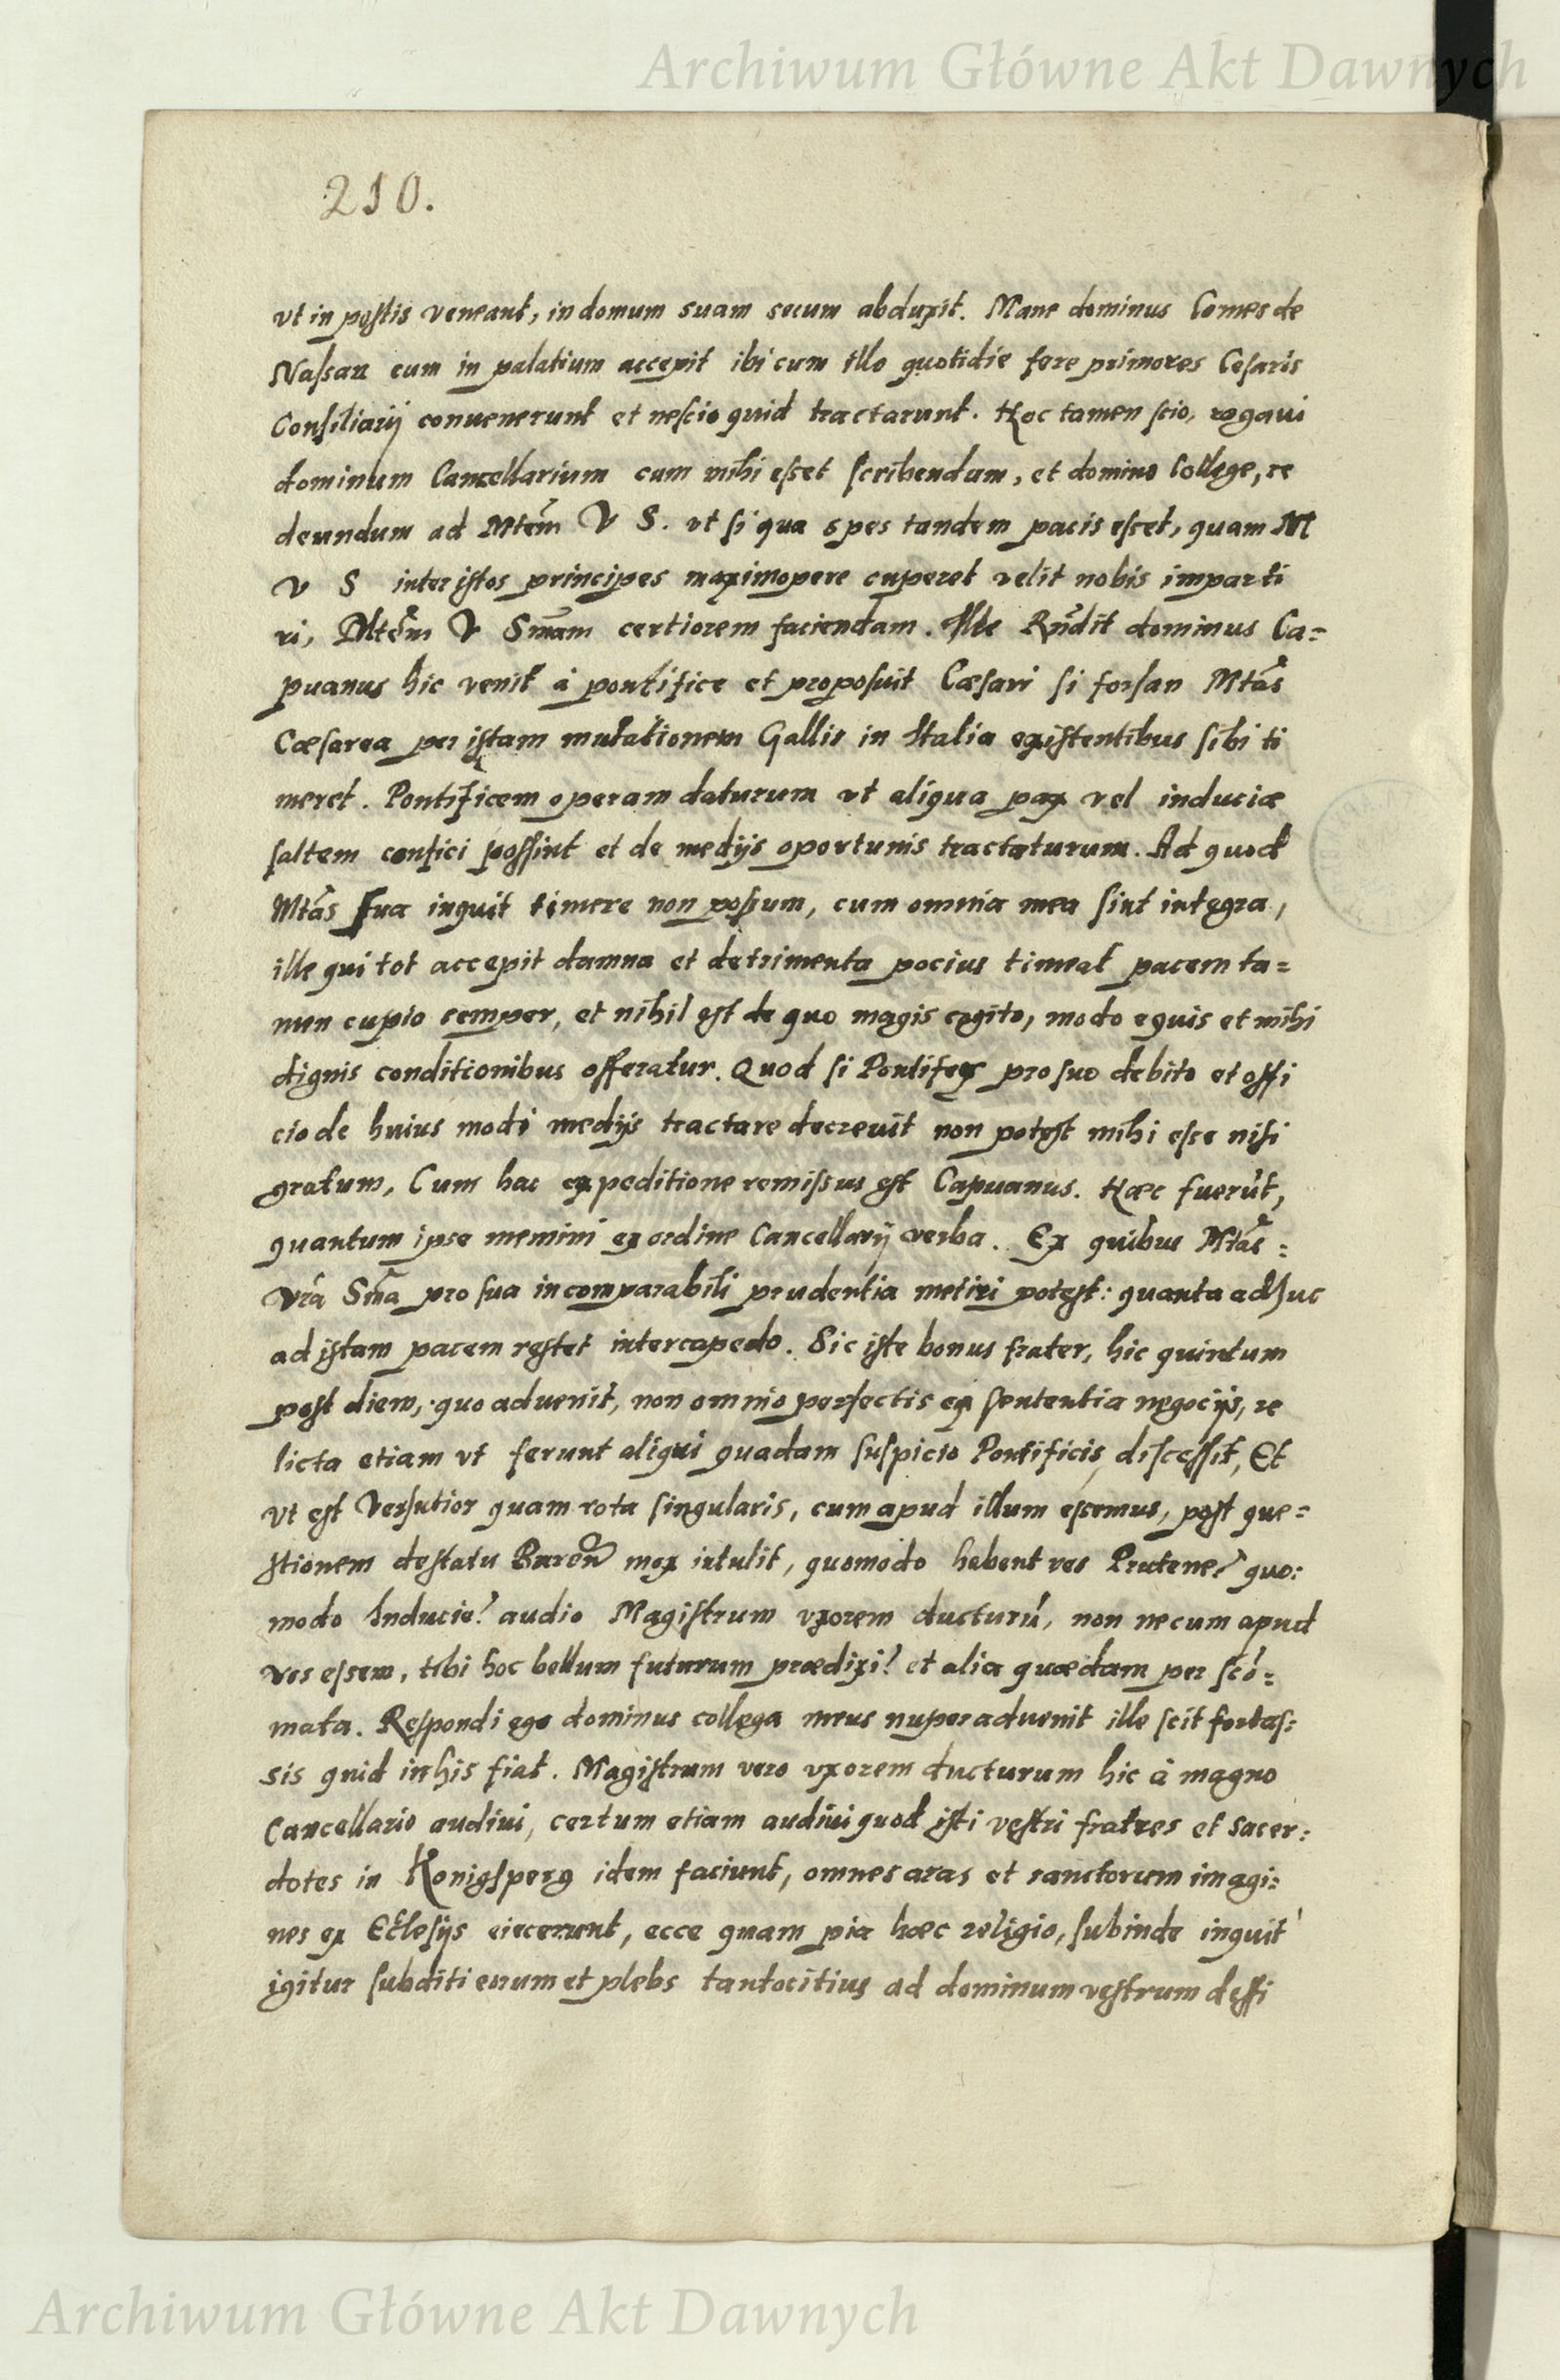 Archiwum Główne Akt Dawnych
210.
vt in postis veneant, in domum suam secum abduxit. Mane dominus Comes de
Nassau eum in palatium accepit ibi cum illo quotidie fere primores Cesaris
Consiliarij conuenerunt et nescio quid tractarunt. Hoc tamen scio, rogaui
dominum Cancellarium cum mihi esset scribendum, et domino College, re
deundum ad Mtem̃ V S. vt si qua spes tandem pacis esset, quam M
V S inter istos principes maximopere cuperet velit nobis imparti
ri, Mtem̃ V Smãm certiorem faciendam. Ille Rñdit dominus Ca=
puanus hic venit à pontifice et proposuit Cæsari si forsan Mtãs
Cæsarea per istam mutationem Gallis in Italia existentibus sibi ti
meret. Pontificem operam daturum vt aliqua pax vel induciæ
saltem confici possint et de medijs oportunis tractaturum. Ad quod
Mtãs sua inquit timere non possum, cum omnia mea sint integra,
ille qui tot accepit damna et detrimenta pocius timeat pacem ta=
men cupio semper, et nihil est de quo magis cogito, modo equis et mihi
dignis conditionibus offeratur. Quod si Pontifex pro suo debito et offi
cio de huius modi medijs tractare decreuit non potest mihi esse nisi
gratum, Cum hac expeditione remissus est Capuanus. Hæc fuerũt,
quantum ipse memini ex ordine Cancellarij verba. Ex quibus Mtãs=
Vrã Smã pro sua incomparabili prudentia metiri potest: quanta adhuc
ad istam pacem restet intercapedo. Sic iste bonus frater, hic quintum
post diem, quo aduenit, non omnio perfectis ex sententia negocijs, re
licta etiam vt ferunt aliqui quadam suspicio Pontificis, discessit, Et
vt est versutior quam rota singularis, cum apud illum essemus, post que=
stionem de statu Bareñ mox intulit, quomodo habent res Prutene? quo:
modo Inducie? audio Magistrum vxorem ducturũ, non ne cum apud
vos essem, tibi hoc bellum futurum prædixi? et alia quædam per scõ=
mata. Respondi ego dominus collega meus nuper aduenit ille scit fortas:
sis quid in his fiat. Magistrum vero vxorem ducturum hic à magno
Cancellario audiui, certum etiam audiui quod isti vestri fratres et sacer:
dotes in Konigsperg idem faciunt, omnes aras et sanctorum imagi:
nes ex Ecclesijs eiecerunt, ecce quam pia hæc religio, subinde inquit
igitur subditi eorum et plebs tantocitius ad dominum vestrum deffi
Archiwum Główne Akt Dawnych